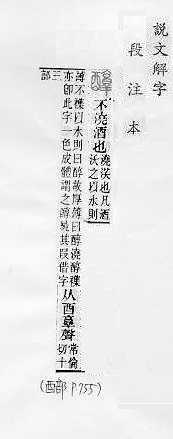 說文解字
段注本
醇 不澆酒也 澆沃也凡酒
沃之㠯水則
薄不襍㠯水則曰醇故厚薄曰醇澆醇襍
亦卽此字一色成體謂之醇純其叚借字
从酉𦎫聲 常倫
切十
三
部
(酉部 P755)